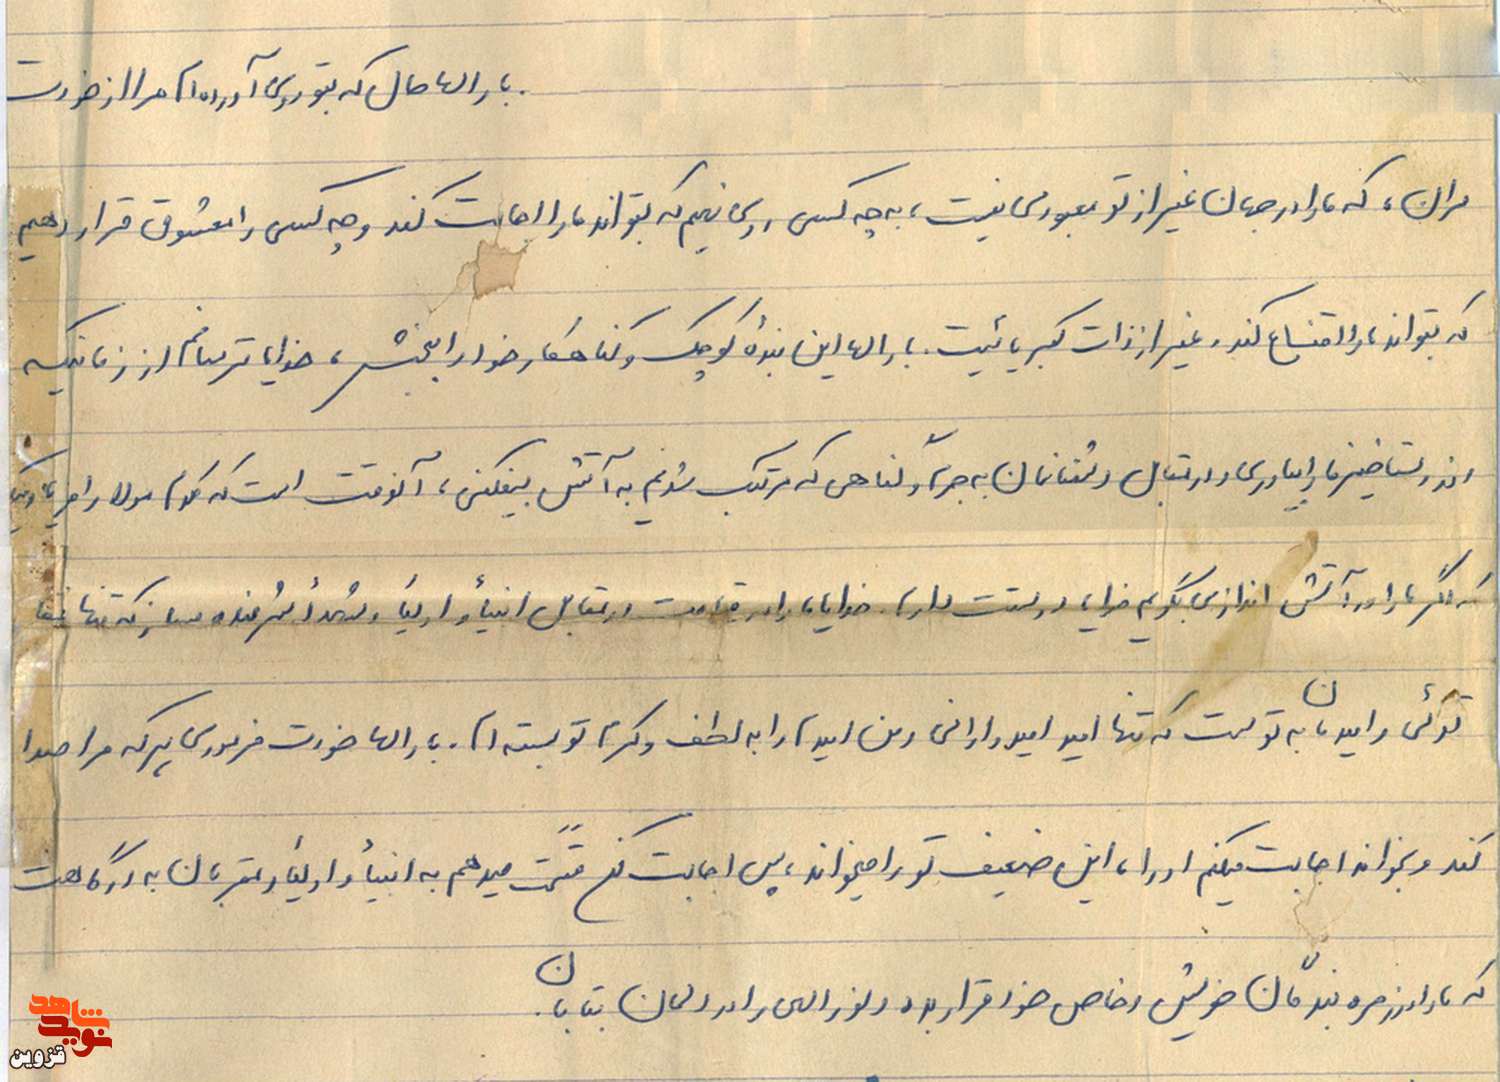 بارالها حال که بتو روی آورده‌ام مرا از خودت
مران، که ما را در جهان غیر از تو معبودی نیست، به چه کسی روی نهیم که بتواند ما را اجابت کند و چه کسی را معشوق قرار دهیم
که بتواند ما را اقناع کند. غیر از ذات کبریائیت. بارالها این بنده کوچک و گناهکار خود را ببخش، خدایا ترسانم از زمانیکه
در رستاخیز ما را بیاوری و در مقابل دشمنانمان به جرم و گناهی که مرتکب شدیم به آتش بیفکنی، آنوقت است که کلام مولا را
که اگر ما را در آتش اندازی بگویم خدایا دوستت دارم. خدایا ما را در قیامت در مقابل انبیاء و اولیاء و شهداء شرمنده مساز که تنها
توئی و امیدمان به توست که تنها امید امیدوارانی و من امیدم را به لطف و کرم تو بسته‌ام. بارالها خودت فرمودی هر که مرا صدا
کند و بخواند اجابت میکنم او را، این ضعیف تو را میخواند، پس اجابت کن قسمت میدهم به انبیاء و اولیاء و مقربان به درگاهت
که ما را در زمره بندگان خویش و خاص خود قرار بده و نور الهی را در دلمان بتابان.
نوید شاهد
قزوین